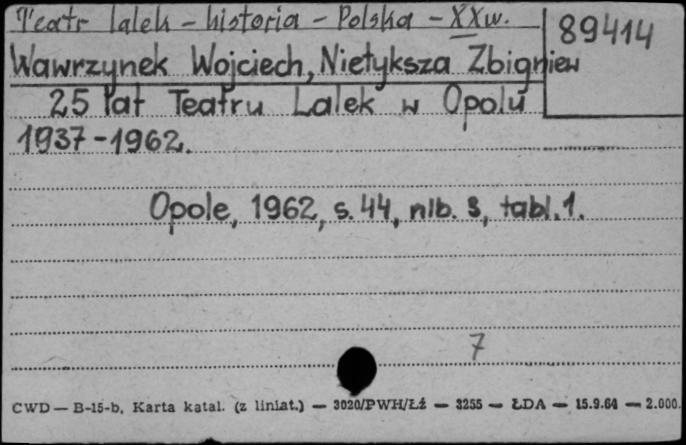 Teatr lalek - historia - Polska - XXw.
89414
Wawrzynek Wojciech, Nietyksza Zbigniew
25 lat Teatru Lalek w Opolu
1937-1962.
Opole, 1962, s. 44, nlb. 3, tabl. 1.
7
CWD — B-15-b, Karta katal. (z liniat.) — 3020/PWH/Łż — 3255 — ŁDA — 15.9.64 — 2.000.